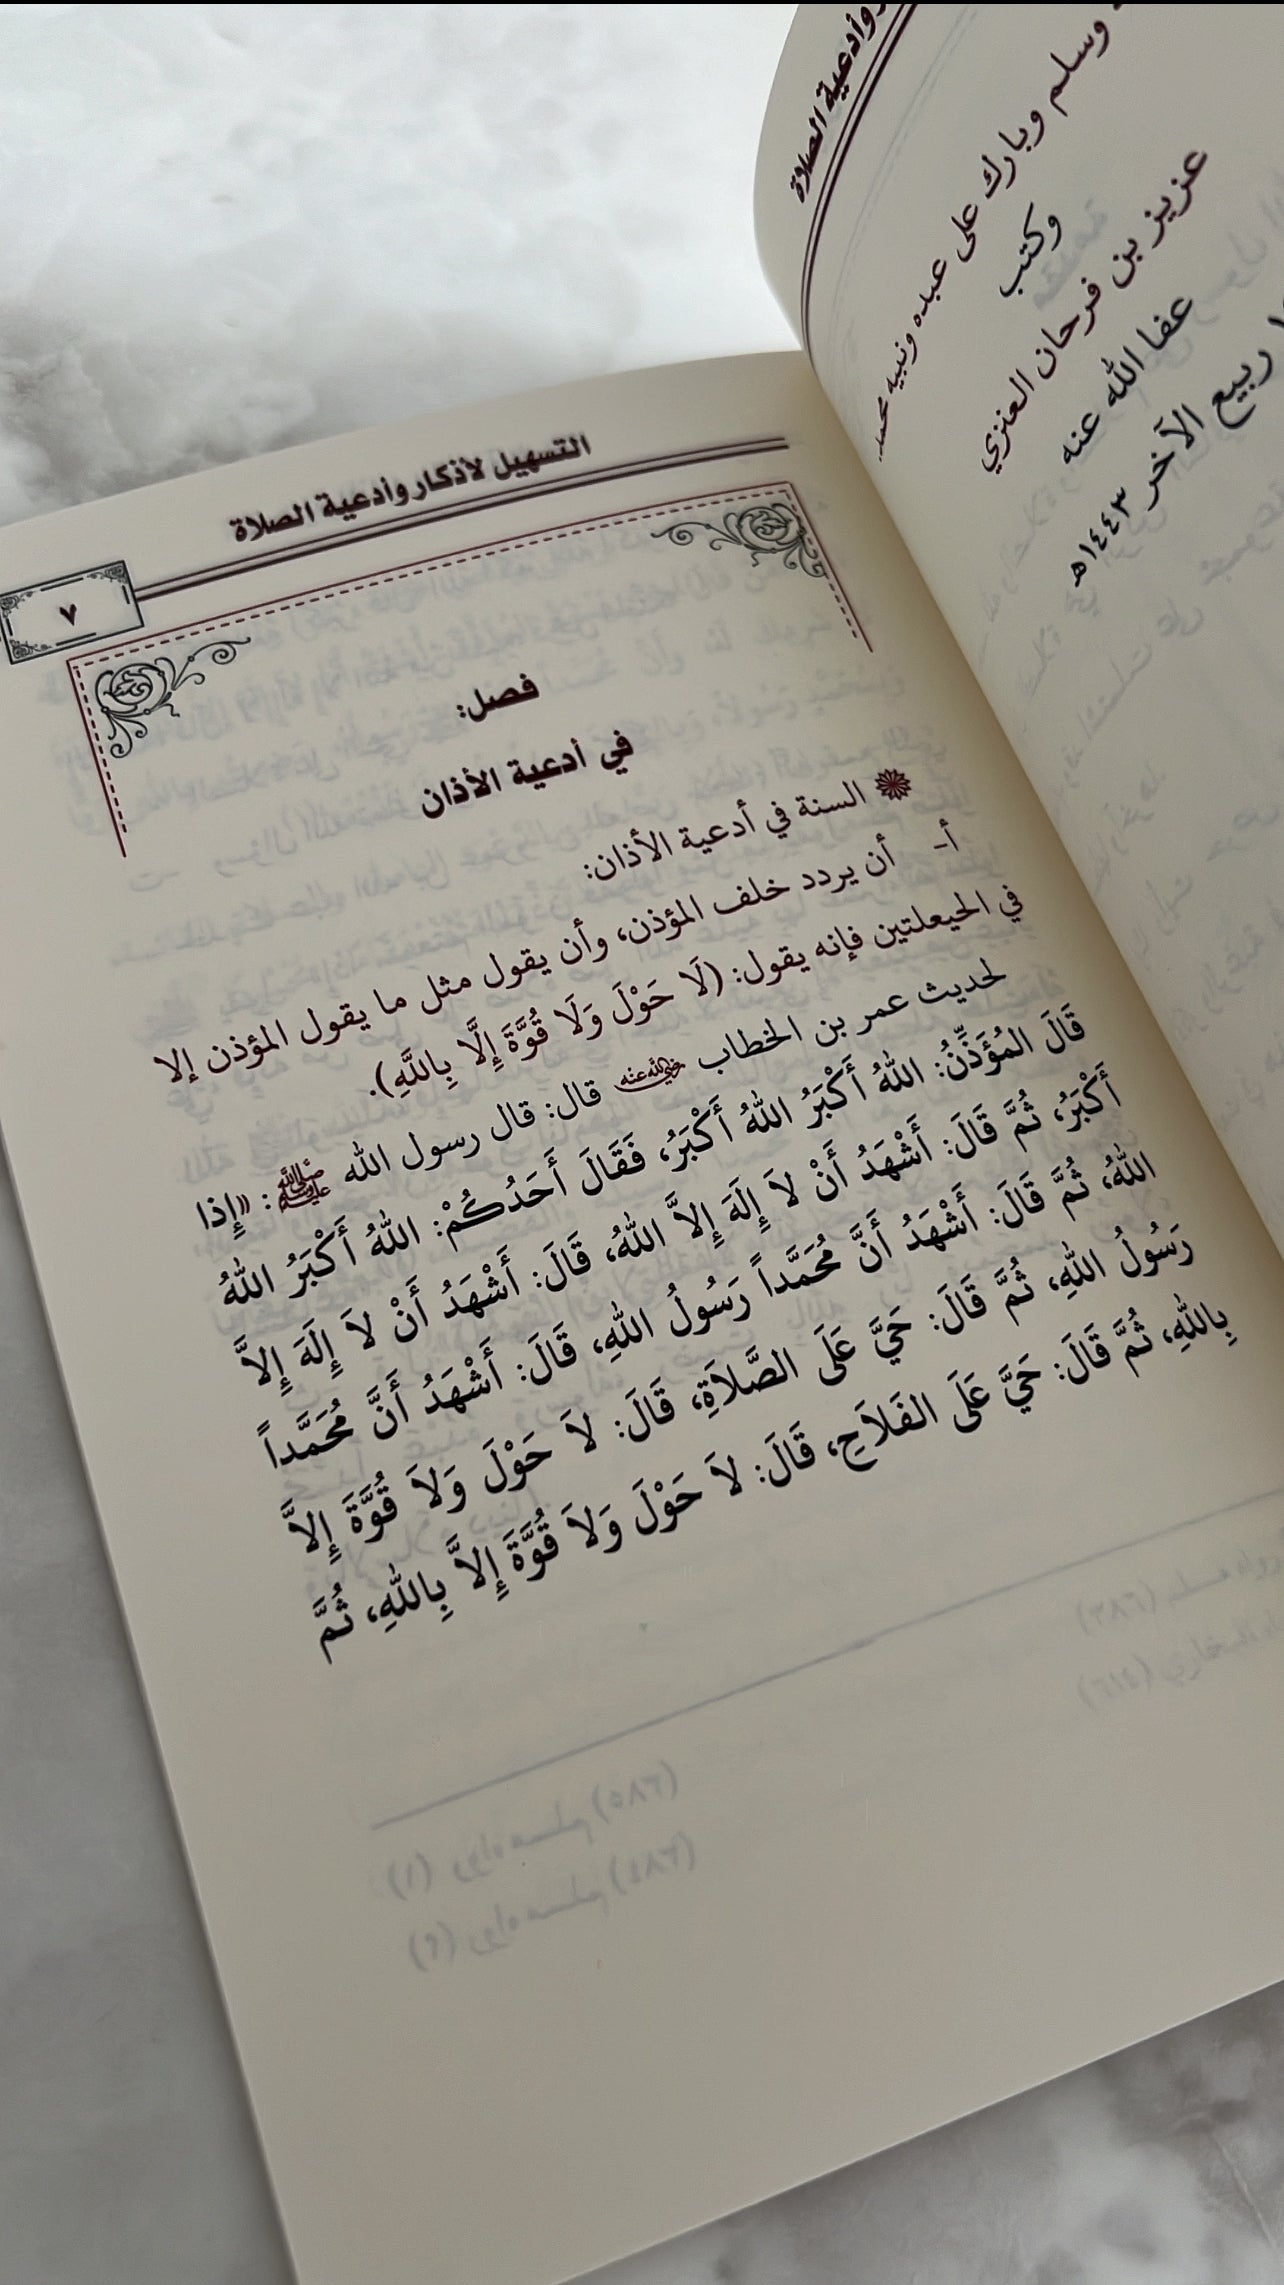 وأدعية الصلاة
وسلم وبارك على عبده ونبيه محمد.
وكتب
عزيز بن فرحان العنزي
عفا الله عنه
ربيع الآخر ١٤٤٣هـ
التسهيل لأذكار وأدعية الصلاة
٧
فصل:
في أدعية الأذان
السنة في أدعية الأذان:
أ- أن يردد خلف المؤذن، وأن يقول مثل ما يقول المؤذن إلا
في الحيعلتين فإنه يقول: (لَا حَوْلَ وَلَا قُوَّةَ إِلَّا بِاللَّهِ).
لحديث عمر بن الخطاب رضي الله عنه قال: قال رسول الله ﷺ: «إِذا
قَالَ المُؤَذِّنُ: اللهُ أَكْبَرُ اللهُ أَكْبَرُ، فَقَالَ أَحَدُكُمْ: اللهُ أَكْبَرُ اللهُ
أَكْبَرُ، ثُمَّ قَالَ: أَشْهَدُ أَنْ لاَ إِلَهَ إِلاَّ اللهُ، قَالَ: أَشْهَدُ أَنْ لاَ إِلَهَ إِلاَّ
اللهُ، ثُمَّ قَالَ: أَشْهَدُ أَنَّ مُحَمَّداً رَسُولُ اللهِ، قَالَ: أَشْهَدُ أَنَّ مُحَمَّداً
رَسُولُ اللهِ، ثُمَّ قَالَ: حَيَّ عَلَى الصَّلاَةِ، قَالَ: لاَ حَوْلَ وَلاَ قُوَّةَ إِلاَّ
بِاللهِ، ثُمَّ قَالَ: حَيَّ عَلَى الفَلاَحِ، قَالَ: لاَ حَوْلَ وَلاَ قُوَّةَ إِلاَّ بِاللهِ، ثُمَّ